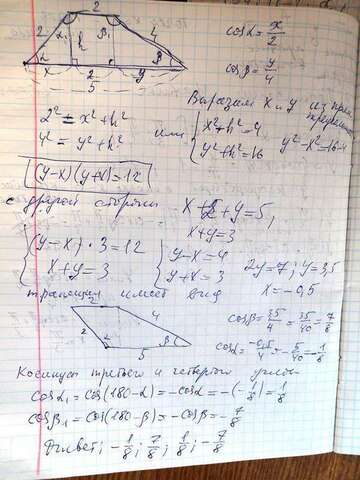 2
2 α₁ h β₁ 4
α β
x 2 y
5
cosα = x/2
cosβ = y/4
Выразим x и y из прям.
треугольник
2² = x² + h²
4² = y² + h²
или
{ x² + h² = 4
{ y² + h² = 16
y² - x² = 16-4
(y-x)(y+x)=12
с другой стороны x+2+y=5,
x+y=3
{ (y-x)·3=12
{ x+y=3
{ y-x=4
{ y+x=3
2y=7; y=3,5
x=-0,5
трапеция имеет вид
2
2 4
α β
5
cosβ = 3,5/4 = 35/40 = 7/8
cosα = -0,5/4 = -5/40 = -1/8
Косинусы третьего и четвертого углов
cosα₁ = cos(180-α) = -cosα = -(-1/8) = 1/8
cosβ₁ = cos(180-β) = -cosβ = -7/8
Ответ: -1/8; 7/8; 1/8; -7/8